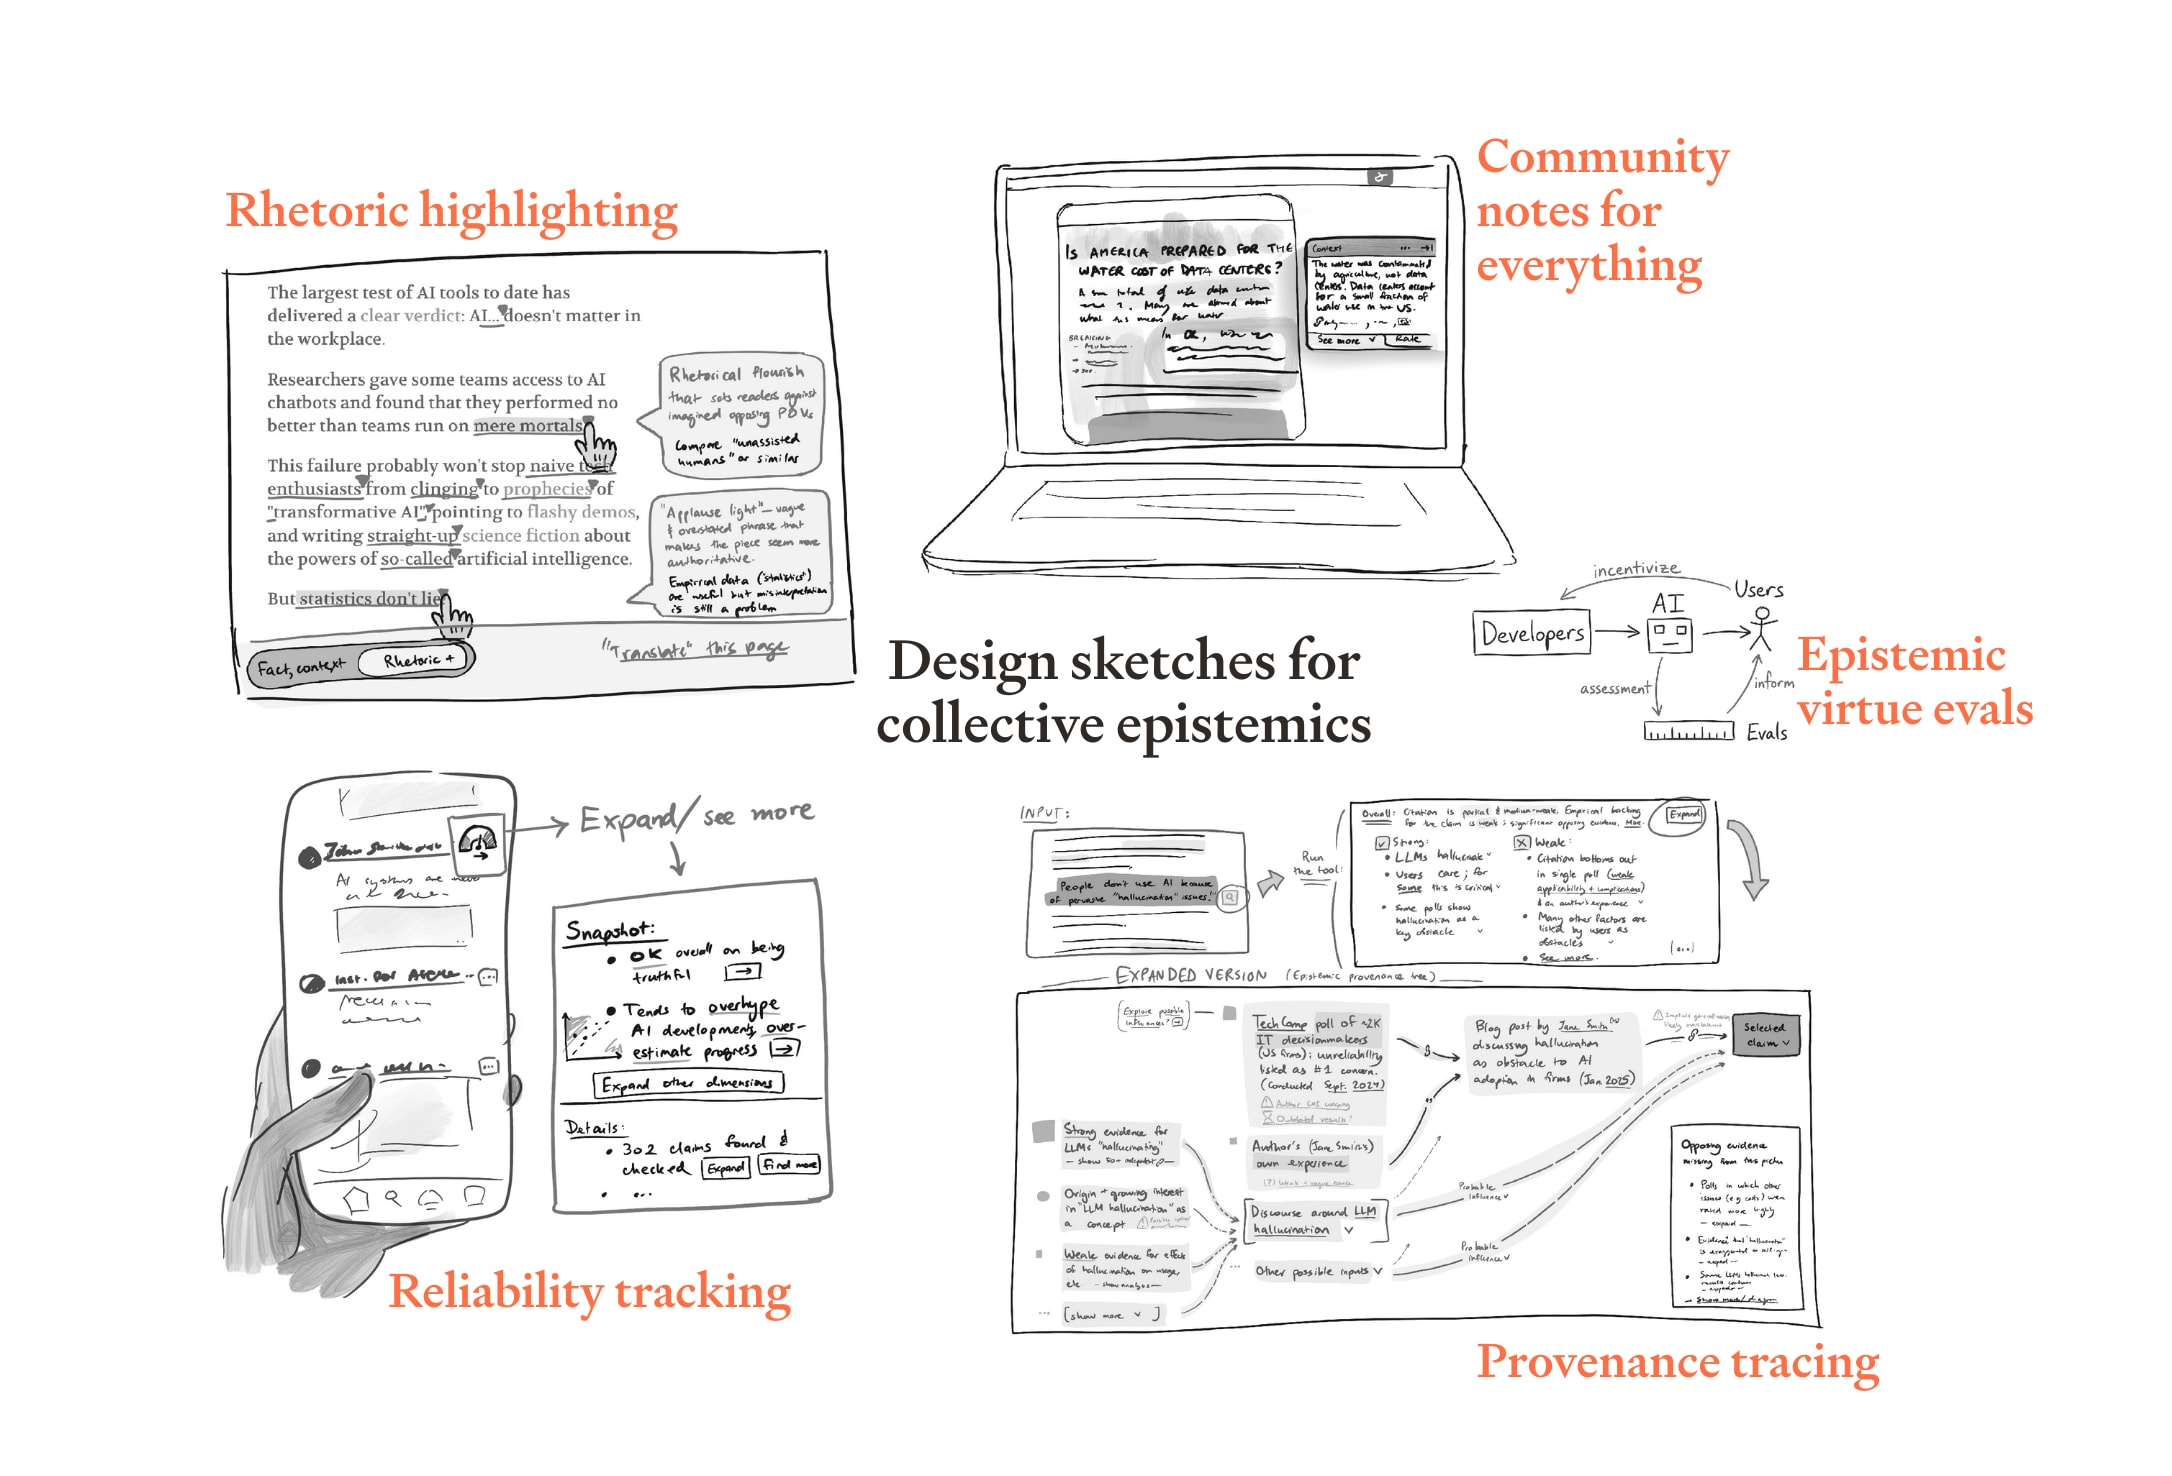 Rhetoric highlighting
The largest test of AI tools to date has
delivered a clear verdict: AI... doesn't matter in
the workplace.
Researchers gave some teams access to AI
chatbots and found that they performed no
better than teams run on mere mortals
This failure probably won't stop naive tech
enthusiasts from clinging to prophecies of
"transformative AI", pointing to flashy demos,
and writing straight-up science fiction about
the powers of so-called artificial intelligence.
But statistics don't lie
Rhetorical flourish
that sets readers against
imagined opposing POVs
Compare "unassisted
humans" or similar
"Applause light" — vague
& overstated phrase that
makes the piece seem more
authoritative.
Empirical data ("statistics")
are useful but misinterpretation
is still a problem
Fact, context
Rhetoric +
"Translate" this page
Community
notes for
everything
IS AMERICA PREPARED FOR THE
WATER COST OF DATA CENTERS?
BREAKING
Context
The water was contaminated
by agriculture, not data
centers. Data centers account
for a small fraction of
water use in the US.
See more
Rate
Design sketches for
collective epistemics
incentivize
Developers
AI
Users
assessment
inform
Evals
Epistemic
virtue evals
AI systems are
Expand/see more
Snapshot:
OK overall on being
truthful
Tends to overhype
AI developments, over-
estimate progress
Expand other dimensions
Details:
302 claims found &
checked
Expand
Find more
...
Reliability tracking
INPUT:
People don't use AI because
of pervasive "hallucination" issues.
Run
the tool:
Overall: Citation is partial & medium-weak. Empirical backing
for the claim is weak; significant opposing evidence. More.
Expand
Strong:
LLMs hallucinate
Users care; for
some this is critical
Some polls show
hallucination as a
key obstacle
Weak:
Citation bottoms out
in single poll (weak
applicability + implications)
& on author's experience
Many other factors are
listed by users as
obstacles
See more.
(...)
EXPANDED VERSION (Epistemic provenance tree)
Explore possible
influences?
TechComp poll of ~2K
IT decisionmakers
(US firms); unreliability
listed as #1 concern.
(Conducted Sept. 2024)
Author COI warning
Author's (Jane Smith's)
own experience
Blog post by Jane Smith
discussing hallucination
as obstacle to AI
adoption in firms (Jan 2025)
Selected
claim
Strong evidence for
LLMs "hallucinating"
Origin + growing interest
in "LLM hallucination" as
a concept
Weak evidence for effects
of hallucination on usage,
etc. — show analysis —
... [show more ]
Discourse around LLM
hallucination
... Other possible inputs
Probable
influence
Probable
influence
Opposing evidence
missing from this picture
Polls in which other
issues (e.g. costs) were
rated more highly
— expand —
Provenance tracing